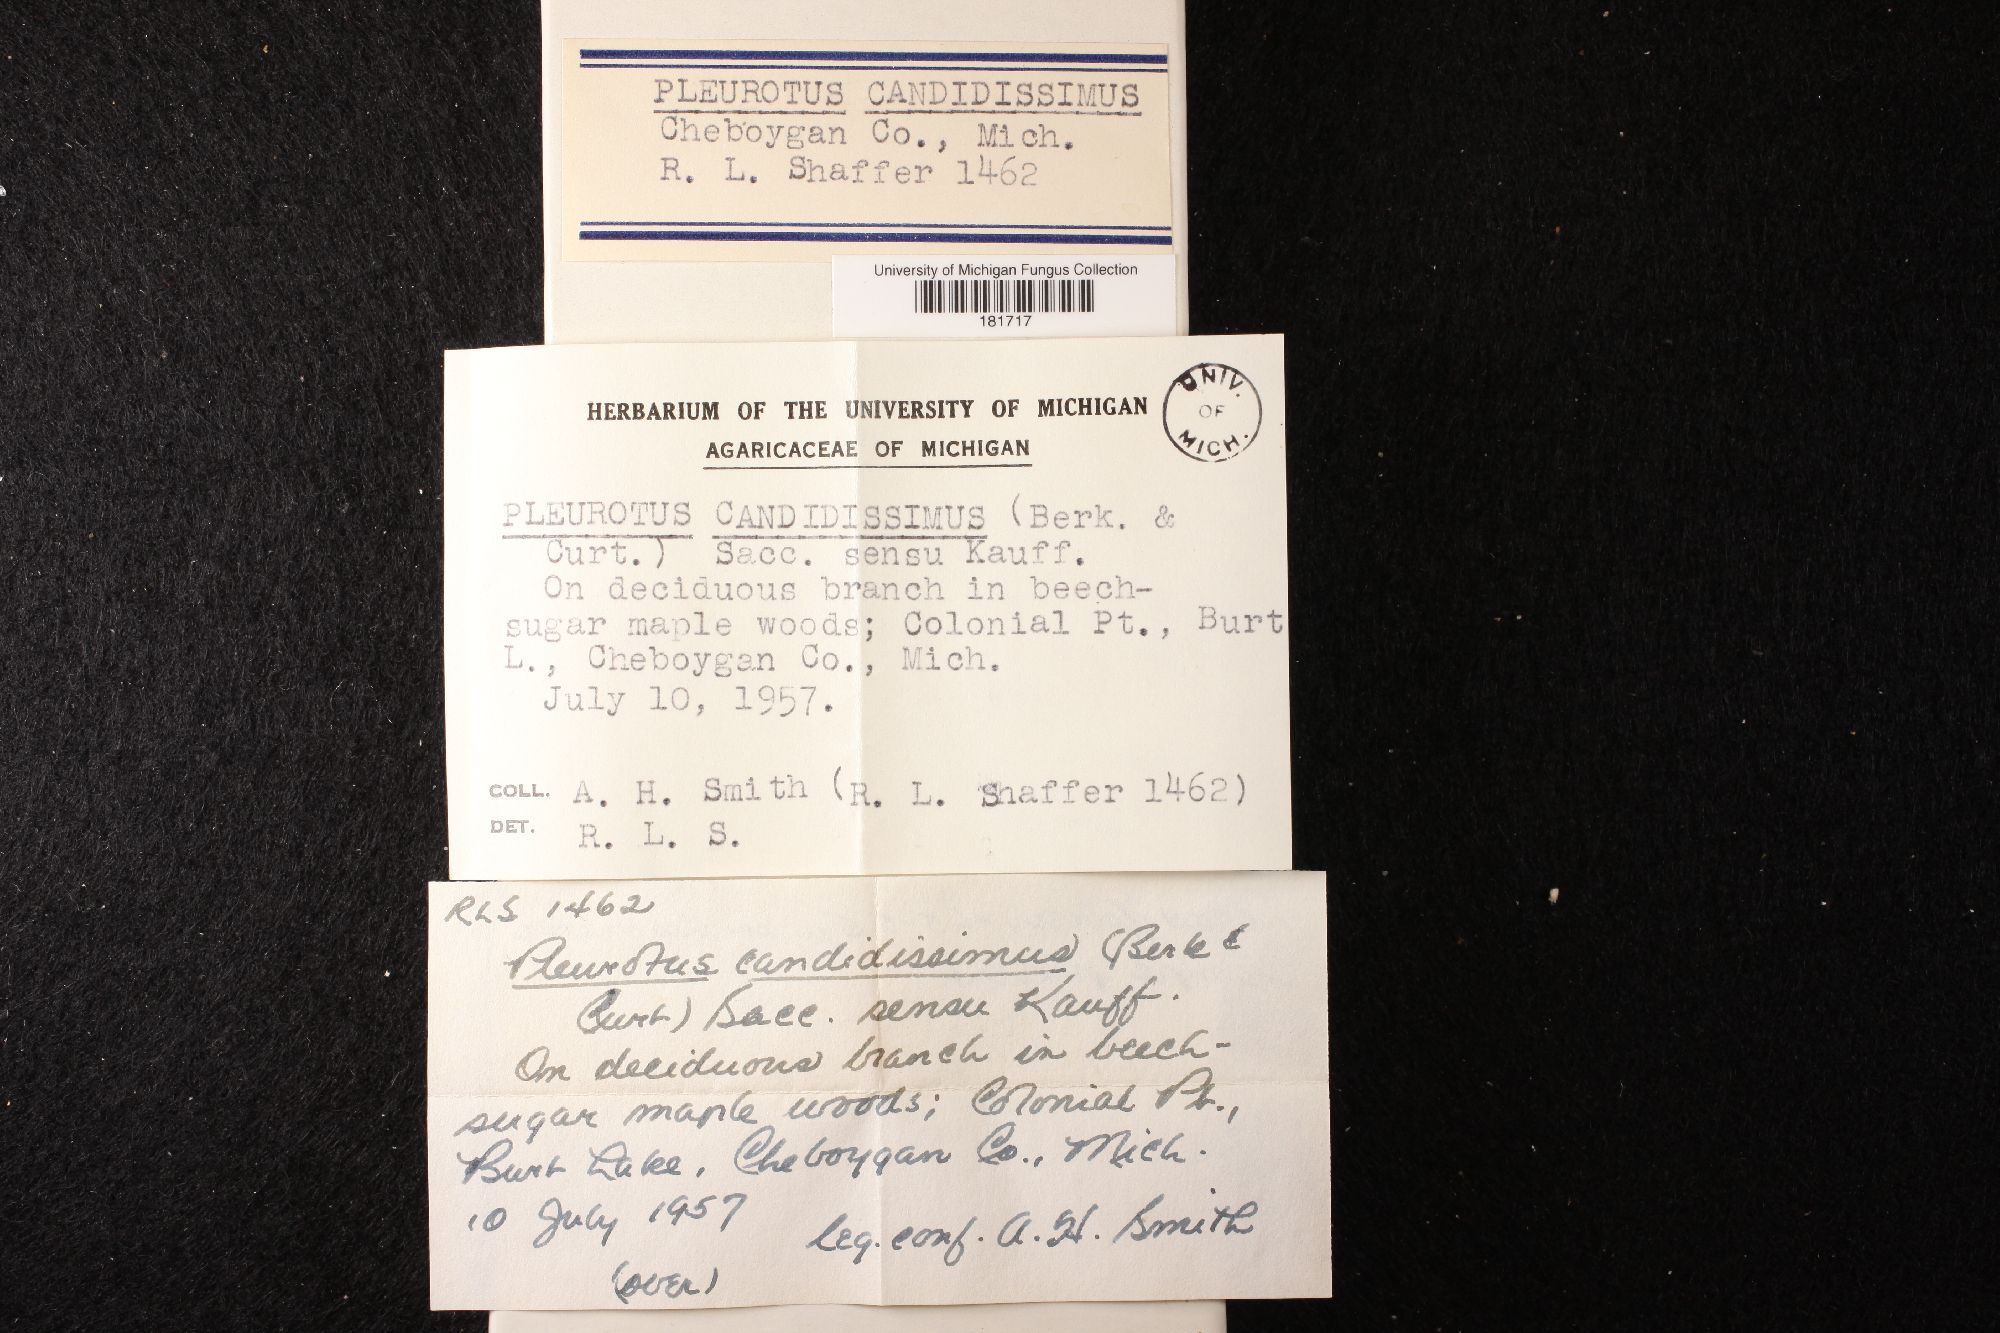 PLEUROTUS CANDIDISSIMUS
Cheboygan Co., Mich.
R. L. Shaffer 1462
University of Michigan Fungus Collection
181717
HERBARIUM OF THE UNIVERSITY OF MICHIGAN
AGARICACEAE OF MICHIGAN
UNIV.
OF
MICH.
PLEUROTUS CANDIDISSIMUS (Berk. &
Curt.) Sacc. sensu Kauff.
On deciduous branch in beech-
sugar maple woods; Colonial Pt., Burt
L., Cheboygan Co., Mich.
July 10, 1957.
COLL. A. H. Smith (R. L. Shaffer 1462)
DET. R. L. S.
RLS 1462
Pleurotus candidissimus (Berk &
Curt) Sacc. sensu Kauff.
On deciduous branch in beech-
sugar maple woods; Colonial Pt.,
Burt Lake, Cheboygan Co., Mich.
10 July 1957
leg. conf. A. H. Smith
(over)